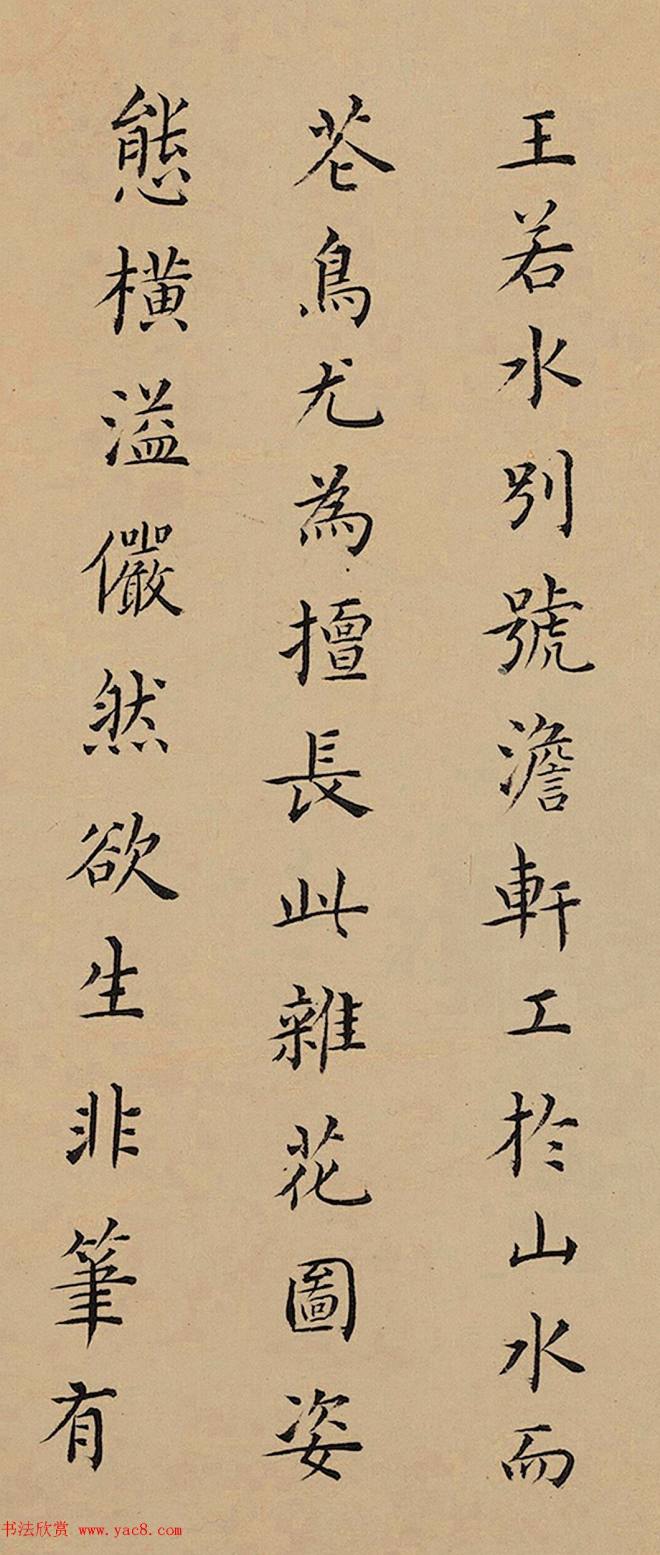 王若水別號澹軒工於山水而
苍鳥尤為擅長此雜花圖姿
態橫溢儼然欲生非筆有
书法欣赏 www.yac8.com